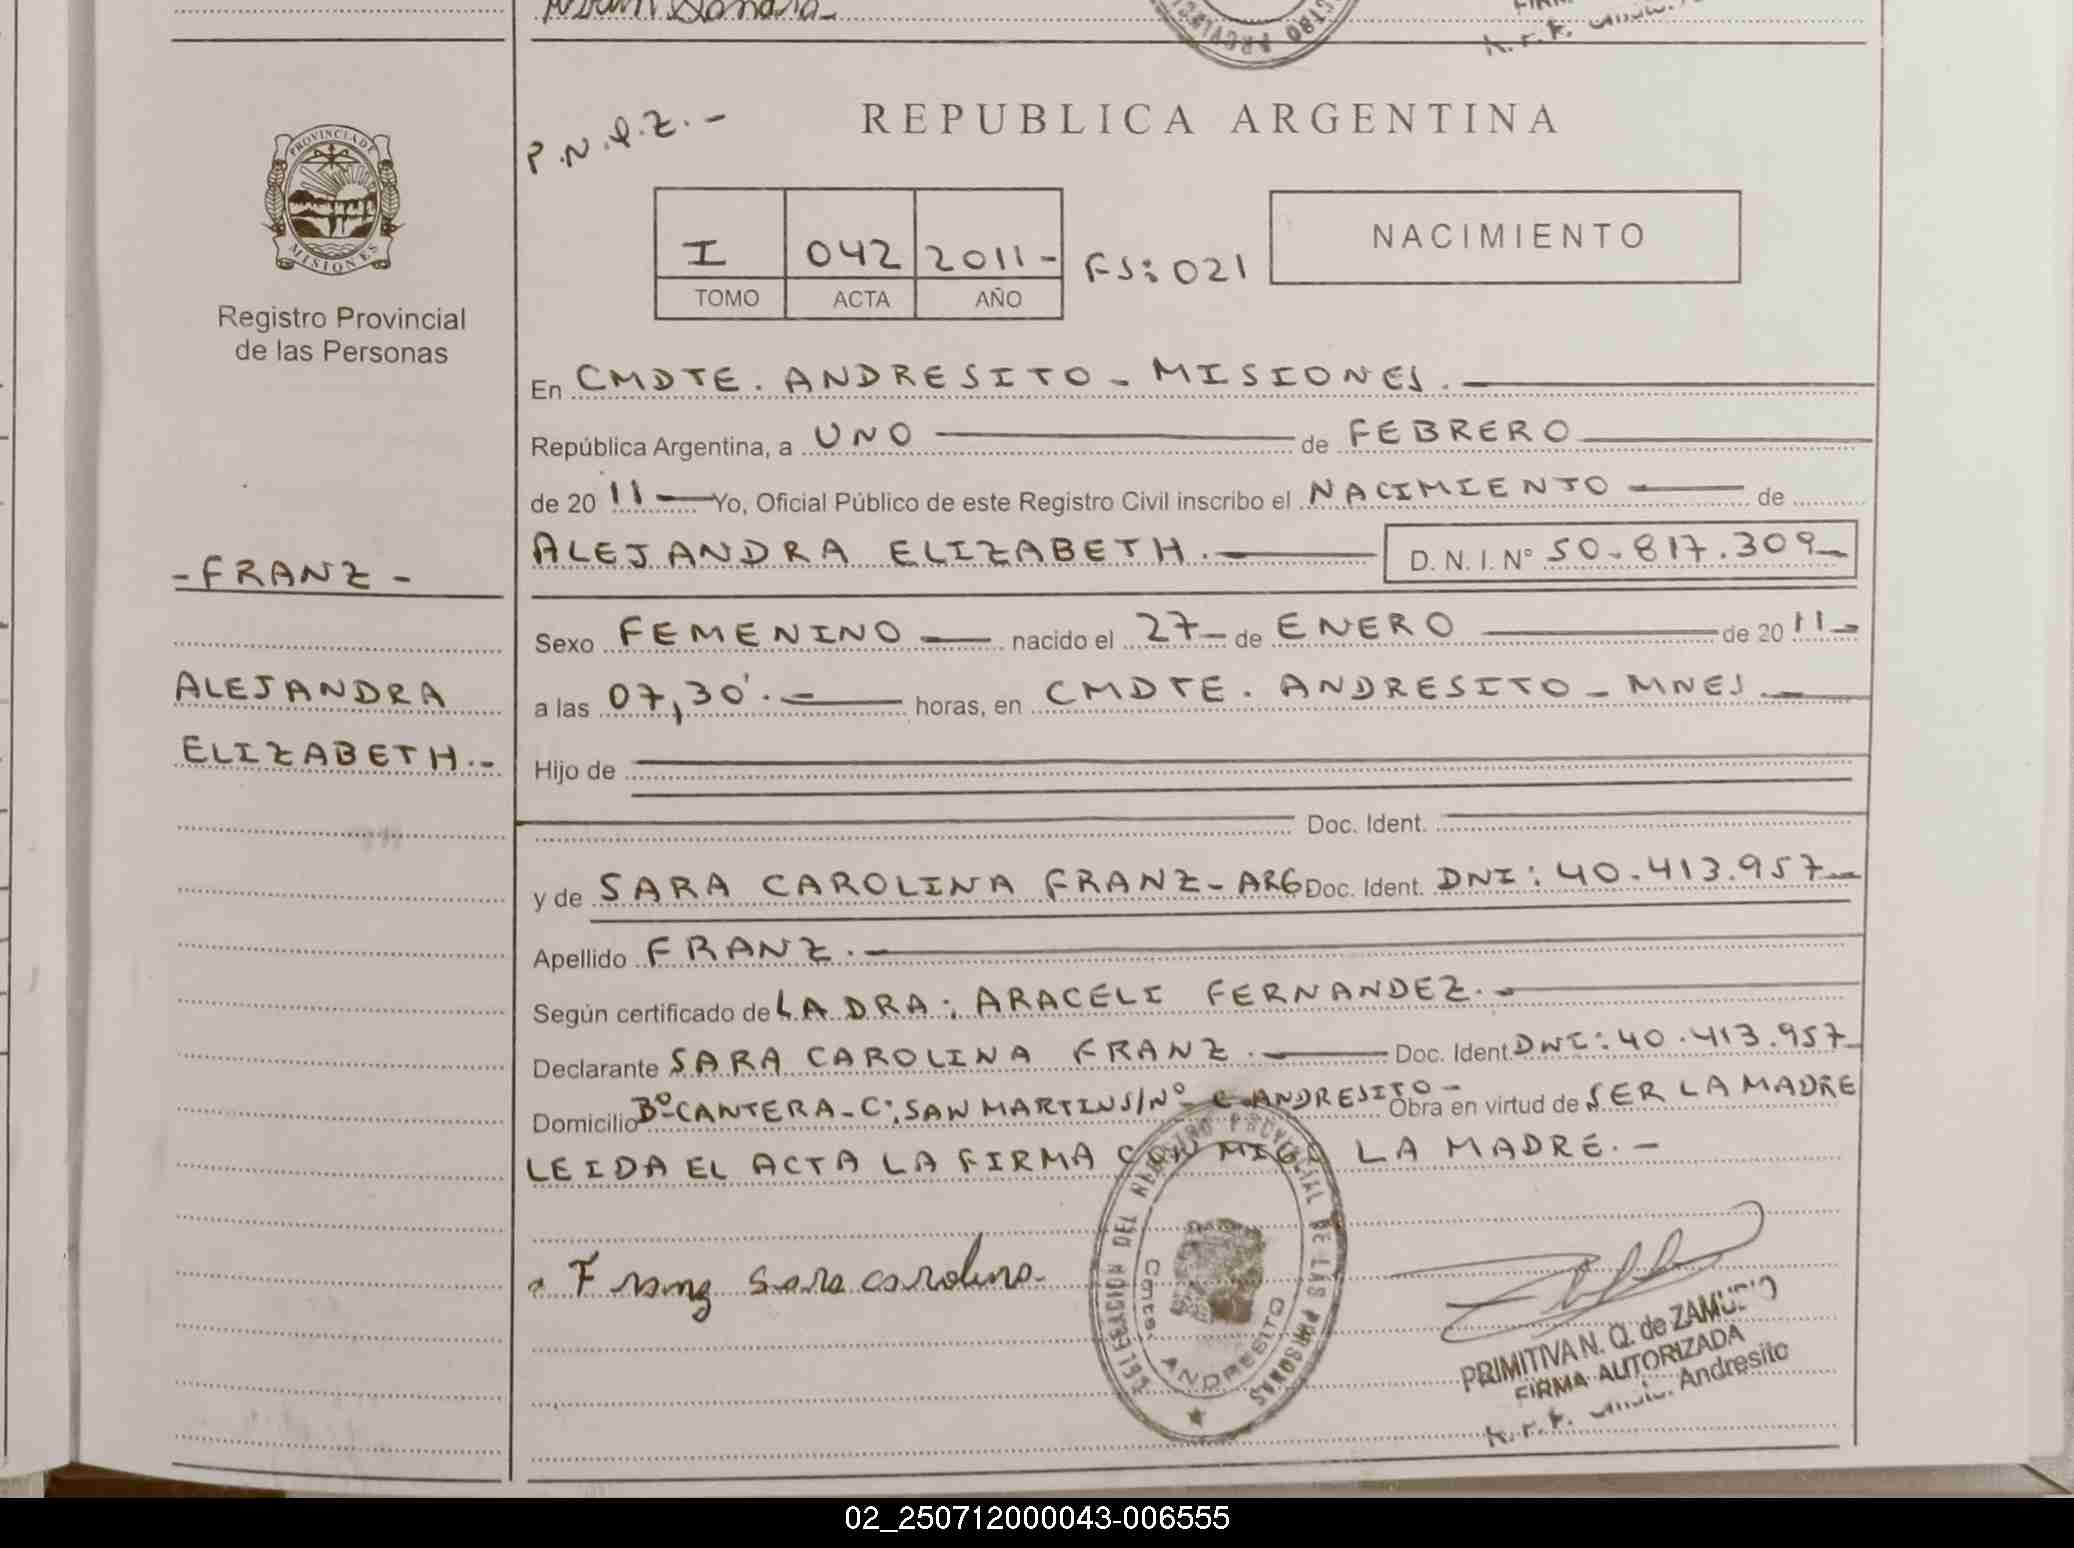 REPUBLICA ARGENTINA
P.N.Q.Z.-
PROVINCIA DE
MISIONES
Registro Provincial
de las Personas
I 042 2011- FS: 021
TOMO ACTA AÑO
NACIMIENTO
En CMDTE. ANDRESITO - MISIONES.
República Argentina, a UNO de FEBRERO
de 20 11 Yo, Oficial Público de este Registro Civil inscribo el NACIMIENTO de
ALEJANDRA ELIZABETH. D. N. I. N° 50.817.309
- FRANZ -
Sexo FEMENINO nacido el 27 de ENERO de 20 11
ALEJANDRA
a las 07,30'. horas, en CMDTE. ANDRESITO - MNES.
ELIZABETH.-
Hijo de
Doc. Ident.
y de SARA CAROLINA FRANZ - ARG Doc. Ident. DNI: 40.413.957
Apellido FRANZ.
Según certificado de LA DRA: ARACELI FERNANDEZ.
Declarante SARA CAROLINA FRANZ. Doc. Ident DNI: 40.413.957
Domicilio Bº CANTERA - C: SAN MARTIN S/Nº - C. ANDRESITO - Obra en virtud de SER LA MADRE
LEIDA EL ACTA LA FIRMA CON MIGO LA MADRE. -
Franz Sara carolina
DELEGACION DEL REGISTRO PROVINCIAL DE LAS PERSONAS
Comte. ANDRESITO
PRIMITIVA N. Q. de ZAMUDIO
FIRMA AUTORIZADA
Andresito
02_250712000043-006555